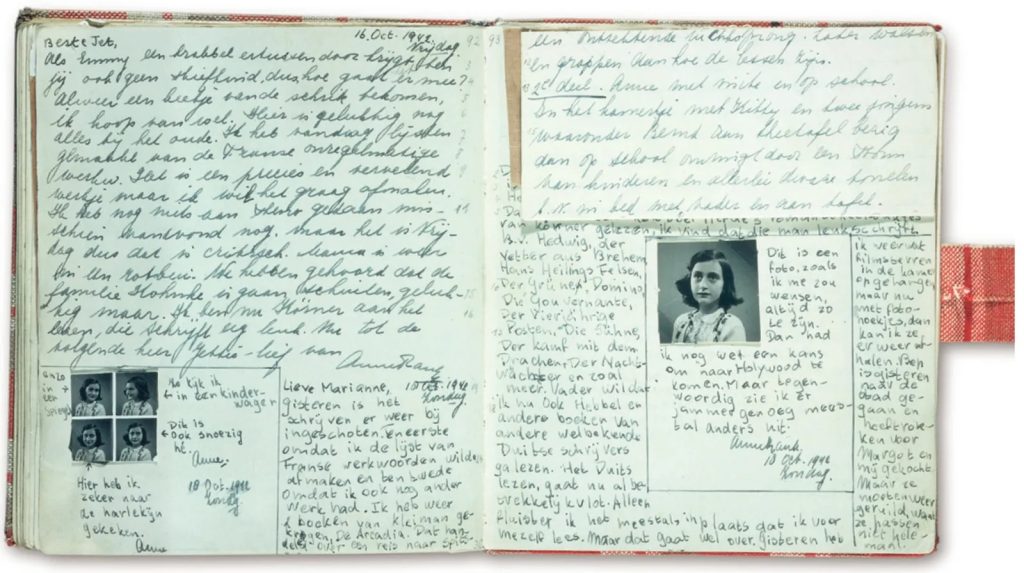 16. Oct. 1942.
Vrijdag
92
Beste Jet,
Als Emmy een krabbel ertussen door krijgt, ben
jij ook geen stiefkind, dus hoe gaat er mee?
Alweer een beetje van de schrik bekomen,
ik hoop van wel. Hier is gelukkig nog
alles bij het oude. Ik heb vandaag lijsten
gemaakt van de Franse onregelmatige
werkw. Het is een precies en vervelend
werkje maar ik wil het graag afmaken.
Ik heb nog niets aan Steno gedaan mis-
schien vanavond nog, maar het is Vrij-
dag dus dat is critisch. Mama is weer
in een rotbui. We hebben gehoord dat de
familie is gaan schuilen, geluk-
kig maar. Ik ben nu Körner aan het
lezen, die schrijft erg leuk. Nu tot de
volgende keer Jettie-lief van
Anne Frank
enzo
in
een
Zo kijk ik
in een kinder-
wagen
Dit is
ook snoezig
hé.
Anne.
18 Oct. 1942
Zondag
Hier heb ik
zeker naar
de harlekijn
gekeken.
Anne
Lieve Marianne, 18 Oct. 1942
Zondag.
gisteren is het
schrijven er weer bij
ingeschoten. Ten eerste
omdat ik de lijst van
Franse werkwoorden wilde
afmaken en ten twede
omdat ik ook nog ander
werk had. Ik heb weer
2 boeken van kleiman ge-
kregen, De Arcadia. Dat han-
deld over een reis naar
93
een ontzettende luchtsprong. Later walsen
en grappen Aan hoe de lessen zijn.
2e deel. Anne met niche en op school.
In het kamertje met Kitty en twee jongens
waaronder Bernd aan theetafel bezig
dan op school omringd door een
van kinderen en allerlei dwaze tonelen
b.v. in bed met vader en aan tafel.
van körner gelezen, ik vind dat die man leuk schrijft.
B.v. Hedwig, der
Vetter aus Bremen,
Hans Heilings Felsen,
Der Grüne Domino,
Die Gouvernante,
Der Vierjährige
Posten, Die Sühne,
Der kampf mit dem
Drachen, Der Nacht-
wächter en zoo
meer. Vader wil dat
ik nu ook Hebbel en
andere boeken van
andere welbekende
Duitse schrijvers
ga lezen. Het Duits
lezen, gaat nu al be-
trekkelijk vlot. Alleen
fluister ik het meestal, in plaats dat ik voor
mezelf lees. Maar dat gaat wel over. gisteren heb
Dit is een
foto, zoals
ik me zou
wensen,
altijd zo
te zijn.
Dan had
ik nog wel een kans
om naar Holywood te
komen. Maar tegen-
woordig zie ik er
jammer genoeg mees-
tal anders uit.
Anne Frank.
18 Oct. 1942
Zondag.
ik veeruit
filmsterren
in de kamer
opgehangen
maar nu
met foto-
hoekjes, dan
kan ik ze
er weer uit
halen. Bep
is gisteren
naar de
stad ge-
gaan en
heeft rok-
ken voor
Margot en
mij gekocht.
Maar ze
moeten weer
geruild, want
ze passen
niet hele-
maal.